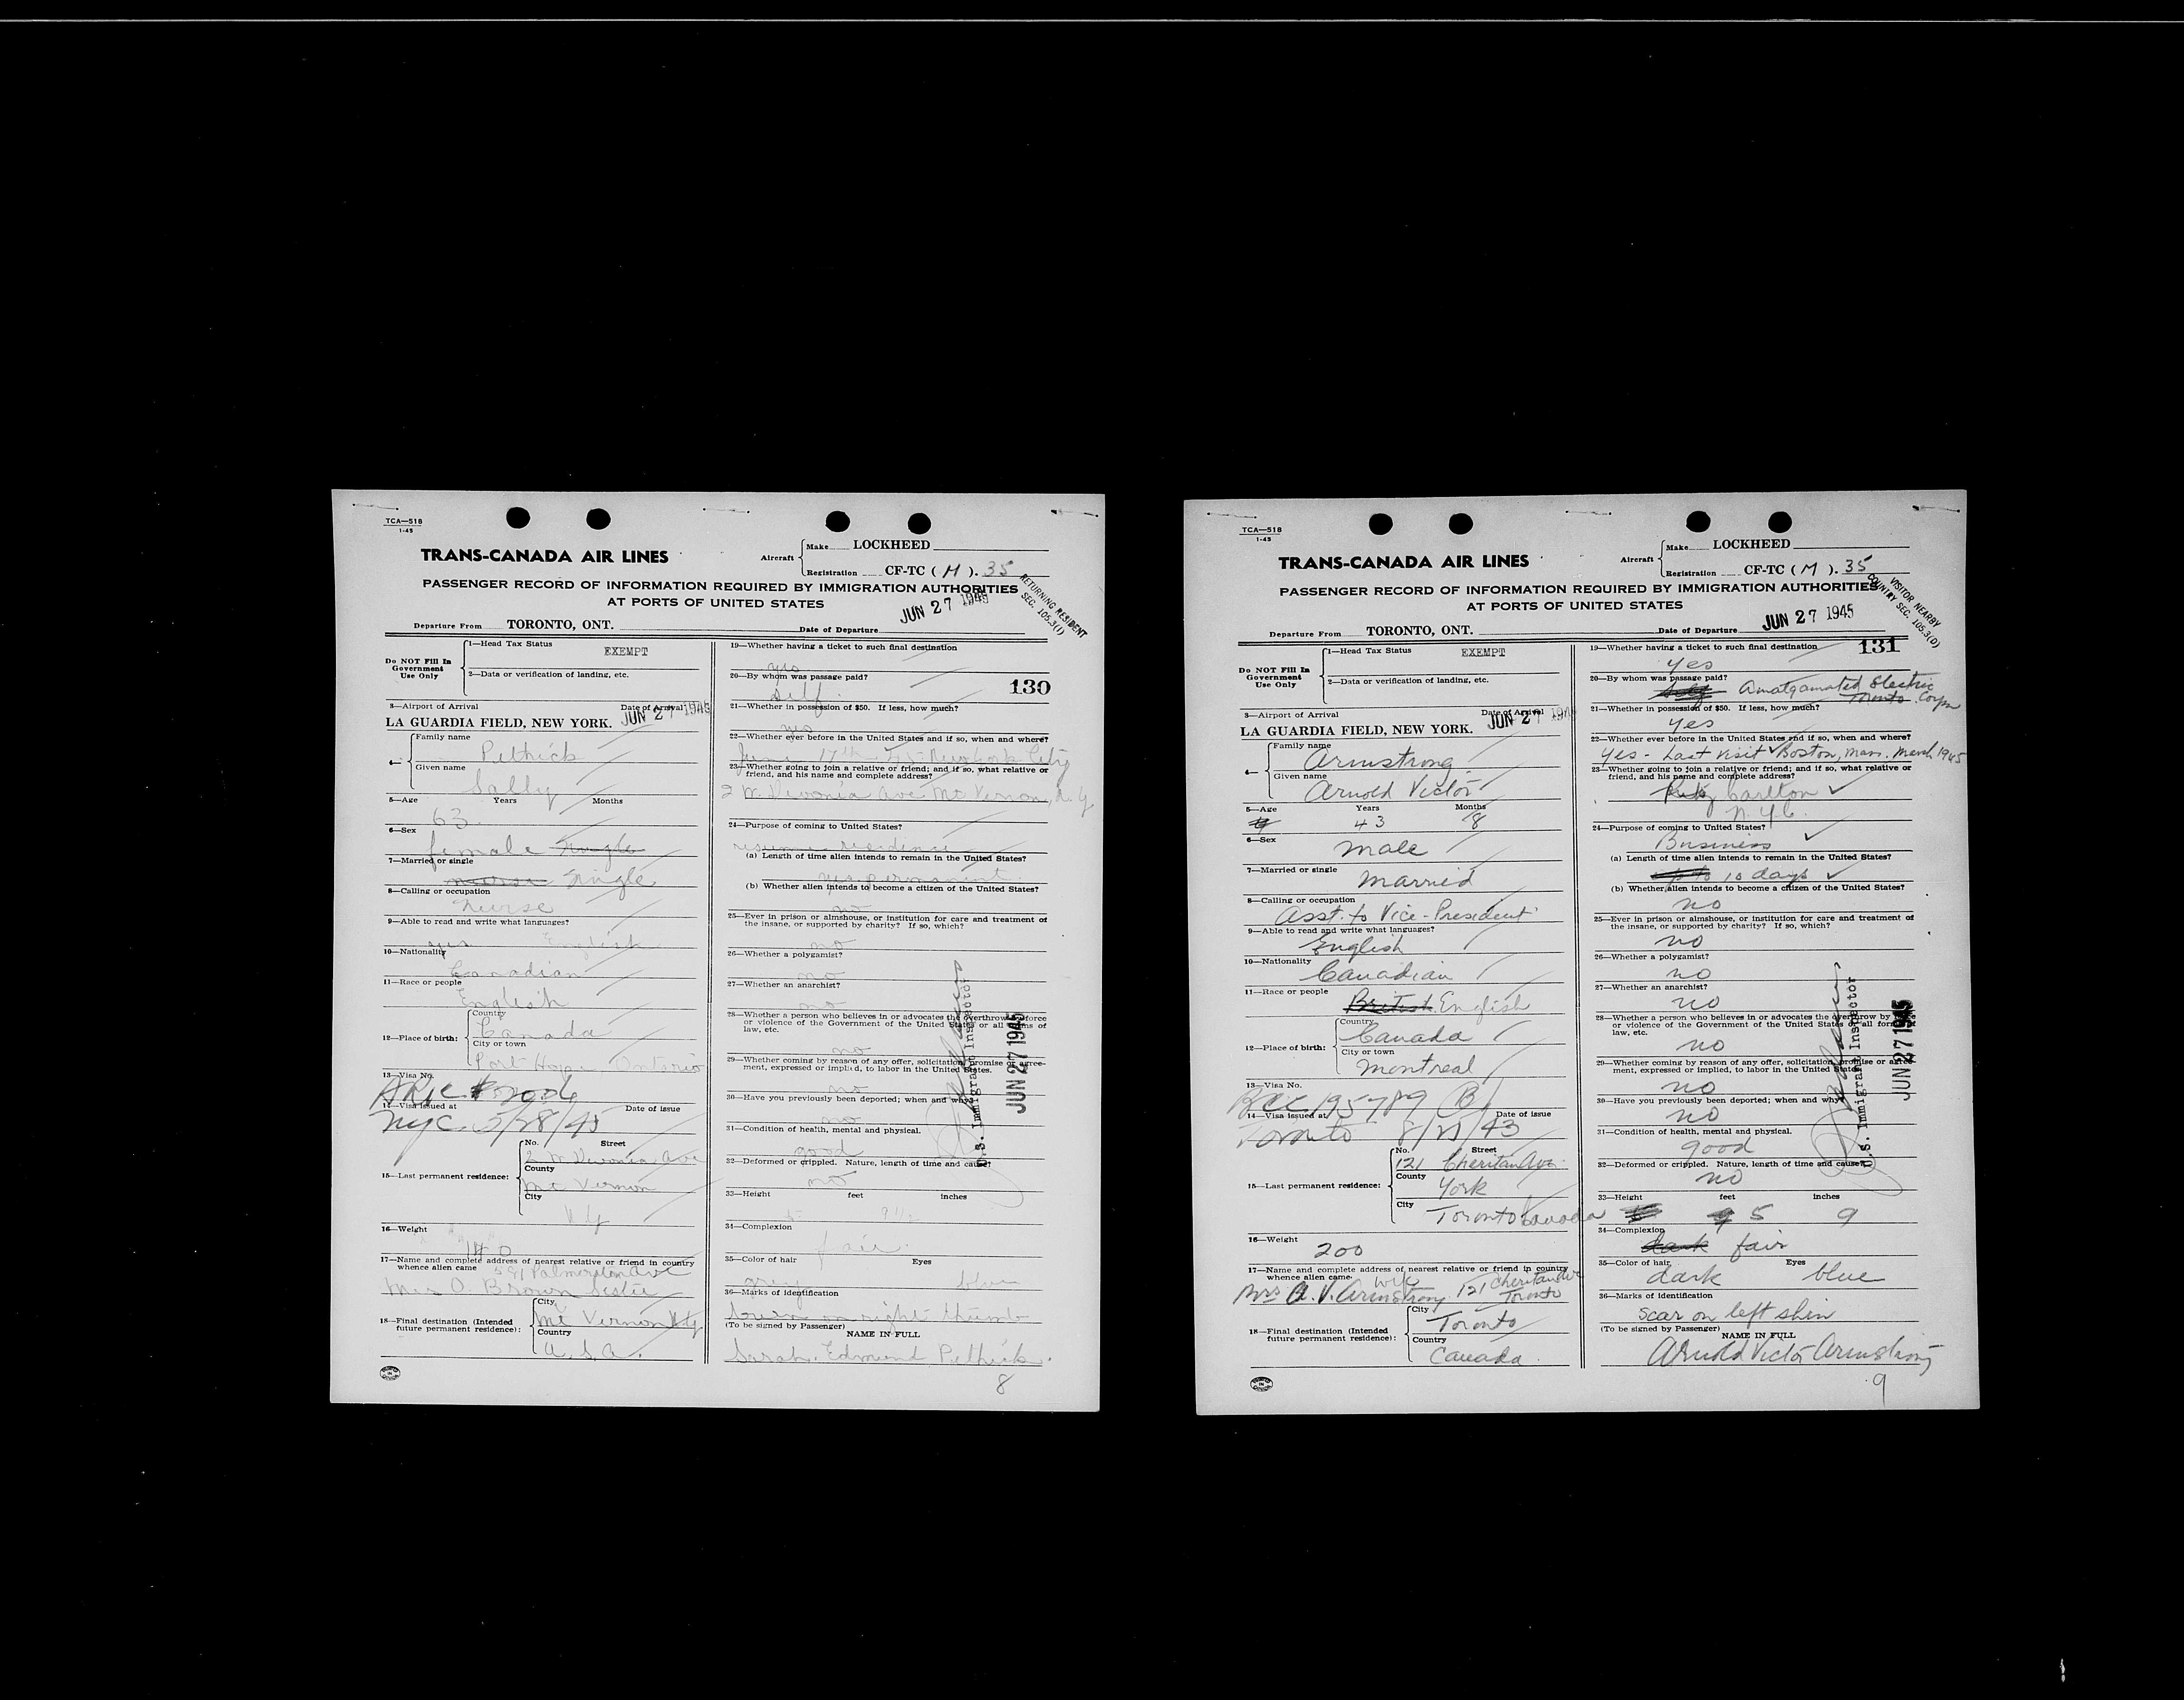 TCA—518
1-45
TRANS-CANADA AIR LINES
Aircraft
Make LOCKHEED
Registration CF-TC ( M ). 35
PASSENGER RECORD OF INFORMATION REQUIRED BY IMMIGRATION AUTHORITIES
AT PORTS OF UNITED STATES
JUN 27 1945
RETURNING RESIDENT
SEC. 105.3(1)
Departure From TORONTO, ONT. Date of Departure
Do NOT Fill In
Government
Use Only
1—Head Tax Status
EXEMPT
2—Data or verification of landing, etc.
3—Airport of Arrival Date of Arrival
LA GUARDIA FIELD, NEW YORK. JUN 27 1945
4—
Family name
Pethick
Given name
Sally
5—Age Years Months
63
6—Sex
female Single
7—Married or single
nurse Single
8—Calling or occupation
Nurse
9—Able to read and write what languages?
yes English
10—Nationality
Canadian
11—Race or people
English
12—Place of birth:
Country
Canada
City or town
Port Hope Ontario
13—Visa No.
14—Visa issued at Date of issue
NYC 5/28/45
15—Last permanent residence:
No. Street
County
Mt Vernon
City
N Y
16—Weight
140
17—Name and complete address of nearest relative or friend in country
whence alien came
Palmerston Ave
Mrs O Brown Sister
18—Final destination (Intended
future permanent residence):
City
Mt Vernon NY
Country
U.S.A.
19—Whether having a ticket to such final destination
yes
20—By whom was passage paid?
self
130
21—Whether in possession of $50. If less, how much?
yes
22—Whether ever before in the United States and if so, when and where?
June 17th - 45 New York City
23—Whether going to join a relative or friend; and if so, what relative or
friend, and his name and complete address?
Ave Mt Vernon, N.Y.
24—Purpose of coming to United States?
resume residence
(a) Length of time alien intends to remain in the United States?
yes permanent
(b) Whether alien intends to become a citizen of the United States?
no
25—Ever in prison or almshouse, or institution for care and treatment of
the insane, or supported by charity? If so, which?
no
26—Whether a polygamist?
no
27—Whether an anarchist?
no
28—Whether a person who believes in or advocates the overthrow by force
or violence of the Government of the United States or all forms of
law, etc.
no
29—Whether coming by reason of any offer, solicitation, promise or agree-
ment, expressed or implied, to labor in the United States.
no
30—Have you previously been deported; when and why?
no
31—Condition of health, mental and physical.
good
32—Deformed or crippled. Nature, length of time and cause?
no
33—Height feet inches
34—Complexion
fair
35—Color of hair Eyes
grey blue
36—Marks of identification
on right thumb
(To be signed by Passenger)
NAME IN FULL
Sarah Edmund Pethick.
U.S. Immigrant Inspector
JUN 27 1945
8
TCA—518
1-45
TRANS-CANADA AIR LINES
Aircraft
Make LOCKHEED
Registration CF-TC ( M ). 35
PASSENGER RECORD OF INFORMATION REQUIRED BY IMMIGRATION AUTHORITIES
AT PORTS OF UNITED STATES
VISITOR NEARBY
COUNTRY SEC. 105.3(D)
Departure From TORONTO, ONT. Date of Departure JUN 27 1945
Do NOT Fill In
Government
Use Only
1—Head Tax Status
EXEMPT
2—Data or verification of landing, etc.
3—Airport of Arrival Date of Arrival
LA GUARDIA FIELD, NEW YORK. JUN 27 194
4—
Family name
Armstrong
Given name
Arnold Victor
5—Age Years Months
43 8
6—Sex
male
7—Married or single
Married
8—Calling or occupation
Asst. to Vice-President
9—Able to read and write what languages?
English
10—Nationality
Canadian
11—Race or people
British English
12—Place of birth:
Country
Canada
City or town
Montreal
13—Visa No.
BCC 195789 (B)
14—Visa issued at Date of issue
Toronto 8/21/43
15—Last permanent residence:
No. Street
121 Cheritan Ave.
County
York
City
Toronto Canada
16—Weight
200
17—Name and complete address of nearest relative or friend in country
whence alien came.
Mrs A. V. Armstrong wife 121 Cheritan Ave
Toronto
18—Final destination (Intended
future permanent residence):
City
Toronto
Country
Canada
19—Whether having a ticket to such final destination
131
yes
20—By whom was passage paid?
self Amalgamated Electric
Toronto Corpn
21—Whether in possession of $50. If less, how much?
yes
22—Whether ever before in the United States and if so, when and where?
Yes - Last visit Boston, Mass. March 1945
23—Whether going to join a relative or friend; and if so, what relative or
friend, and his name and complete address?
Ritz Carlton
N.Y.C.
24—Purpose of coming to United States?
Business
(a) Length of time alien intends to remain in the United States?
10 days
(b) Whether alien intends to become a citizen of the United States?
no
25—Ever in prison or almshouse, or institution for care and treatment of
the insane, or supported by charity? If so, which?
no
26—Whether a polygamist?
no
27—Whether an anarchist?
no
28—Whether a person who believes in or advocates the overthrow by
or violence of the Government of the United States or all forms of
law, etc.
no
29—Whether coming by reason of any offer, solicitation, promise or agree-
ment, expressed or implied, to labor in the United States.
no
30—Have you previously been deported; when and why?
no
31—Condition of health, mental and physical.
good
32—Deformed or crippled. Nature, length of time and cause?
no
33—Height feet inches
5 9
34—Complexion
dark fair
35—Color of hair Eyes
dark blue
36—Marks of identification
scar on left shin
(To be signed by Passenger)
NAME IN FULL
Arnold Victor Armstrong
U.S. Immigrant Inspector
JUN 27 1945
9